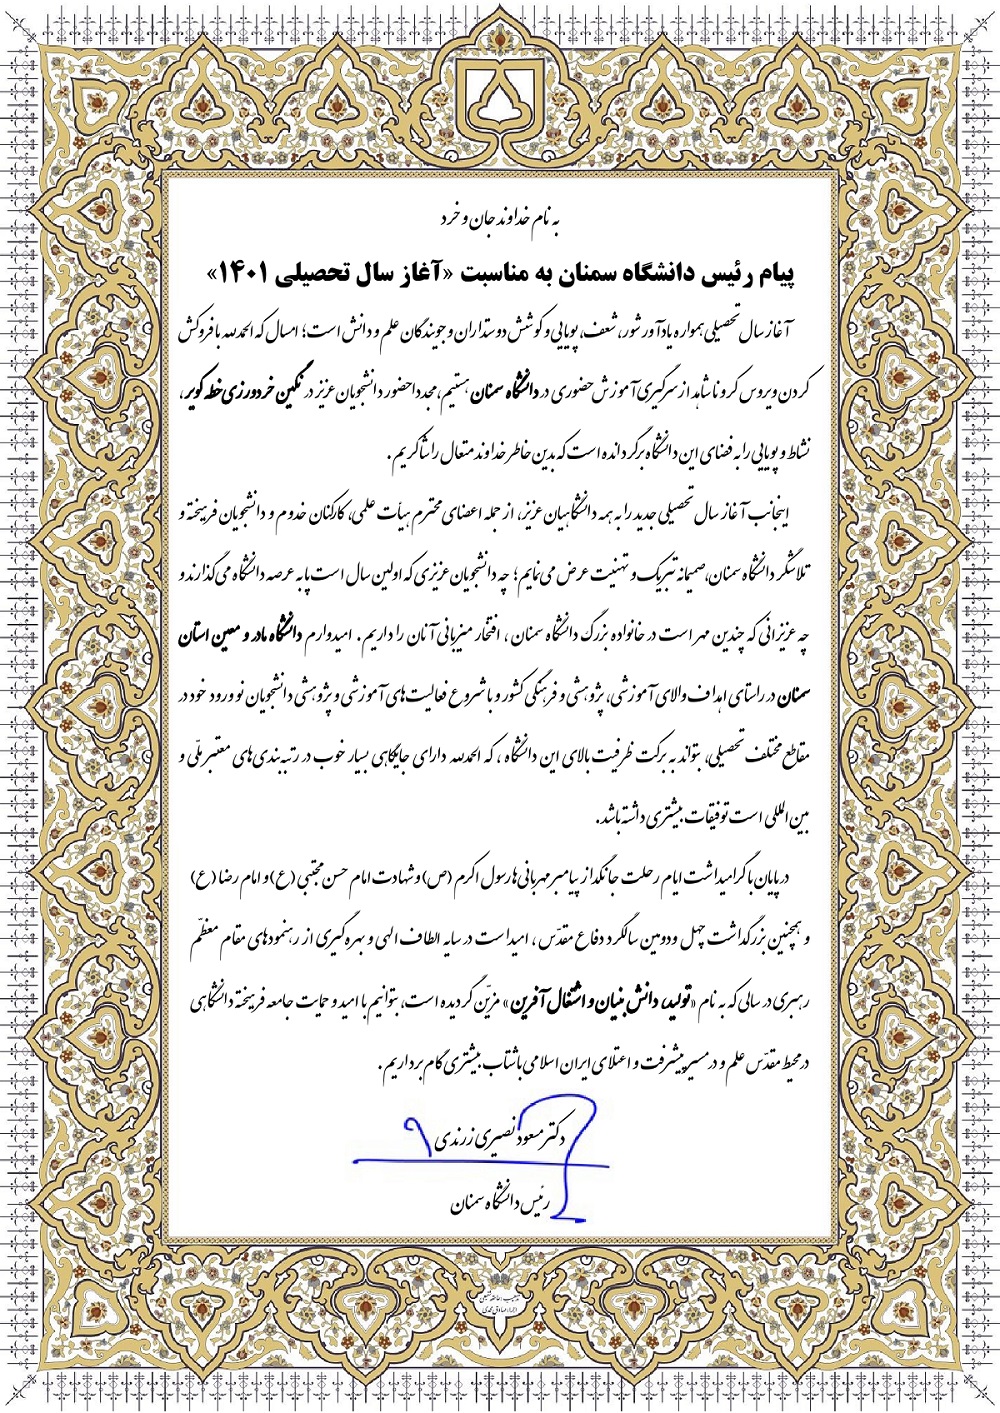 به نام خداوند جان و خرد
پیام رئیس دانشگاه سمنان به مناسبت «آغاز سال تحصیلی ۱۴۰۱»
آغاز سال تحصیلی همواره یادآور شور، شعف، پویایی و کوشش دوستداران و جویندگان علم و دانش است؛ امسال که الحمدلله با فروکش
کردن ویروس کرونا شاهد از سرگیری آموزش حضوری در دانشگاه سمنان هستیم، مجددا حضور دانشجویان عزیز در نگین خردورزی خطه کویر،
نشاط و پویایی را به فضای این دانشگاه برگردانده است که بدین خاطر خداوند متعال را شاکریم.
اینجانب آغاز سال تحصیلی جدید را به همه دانشگاهیان عزیز، از جمله اعضای محترم هیأت علمی، کارکنان خدوم و دانشجویان فرهیخته و
تلاشگر دانشگاه سمنان، صمیمانه تبریک و تهنیت عرض می‌نمایم؛ چه دانشجویان عزیزی که اولین سال است پا به عرصه دانشگاه می‌گذارند و
چه عزیزانی که چندین مهر است در خانواده بزرگ دانشگاه سمنان، افتخار میزبانی آنان را داریم. امیدوارم دانشگاه مادر و معین استان
سمنان در راستای اهداف والای آموزشی، پژوهشی و فرهنگی کشور و با شروع فعالیت‌های آموزشی و پژوهشی دانشجویان نو ورود خود در
مقاطع مختلف تحصیلی، بتواند به برکت ظرفیت بالای این دانشگاه، که الحمدلله دارای جایگاهی بسیار خوب در رتبه‌بندی‌های معتبر ملّی و
بین المللی است توفیقات بیشتری داشته باشد.
در پایان با گرامیداشت ایام رحلت جانگداز پیامبر مهربانی‌ها رسول اکرم (ص) و شهادت امام حسن مجتبی (ع) و امام رضا (ع)
و همچنین بزرگداشت چهل و دومین سالگرد دفاع مقدّس، امید است در سایه الطاف الهی و بهره‌گیری از رهنمودهای مقام معظّم
رهبری در سالی که به نام «تولید، دانش بنیان و اشتغال آفرین» مزیّن گردیده است، بتوانیم با امید و حمایت جامعه فرهیخته دانشگاهی
در محیط مقدّس علم و در مسیر پیشرفت و اعتلای ایران اسلامی با شتاب بیشتری گام برداریم.
دکتر مسعود نصیری زرندی
رئیس دانشگاه سمنان